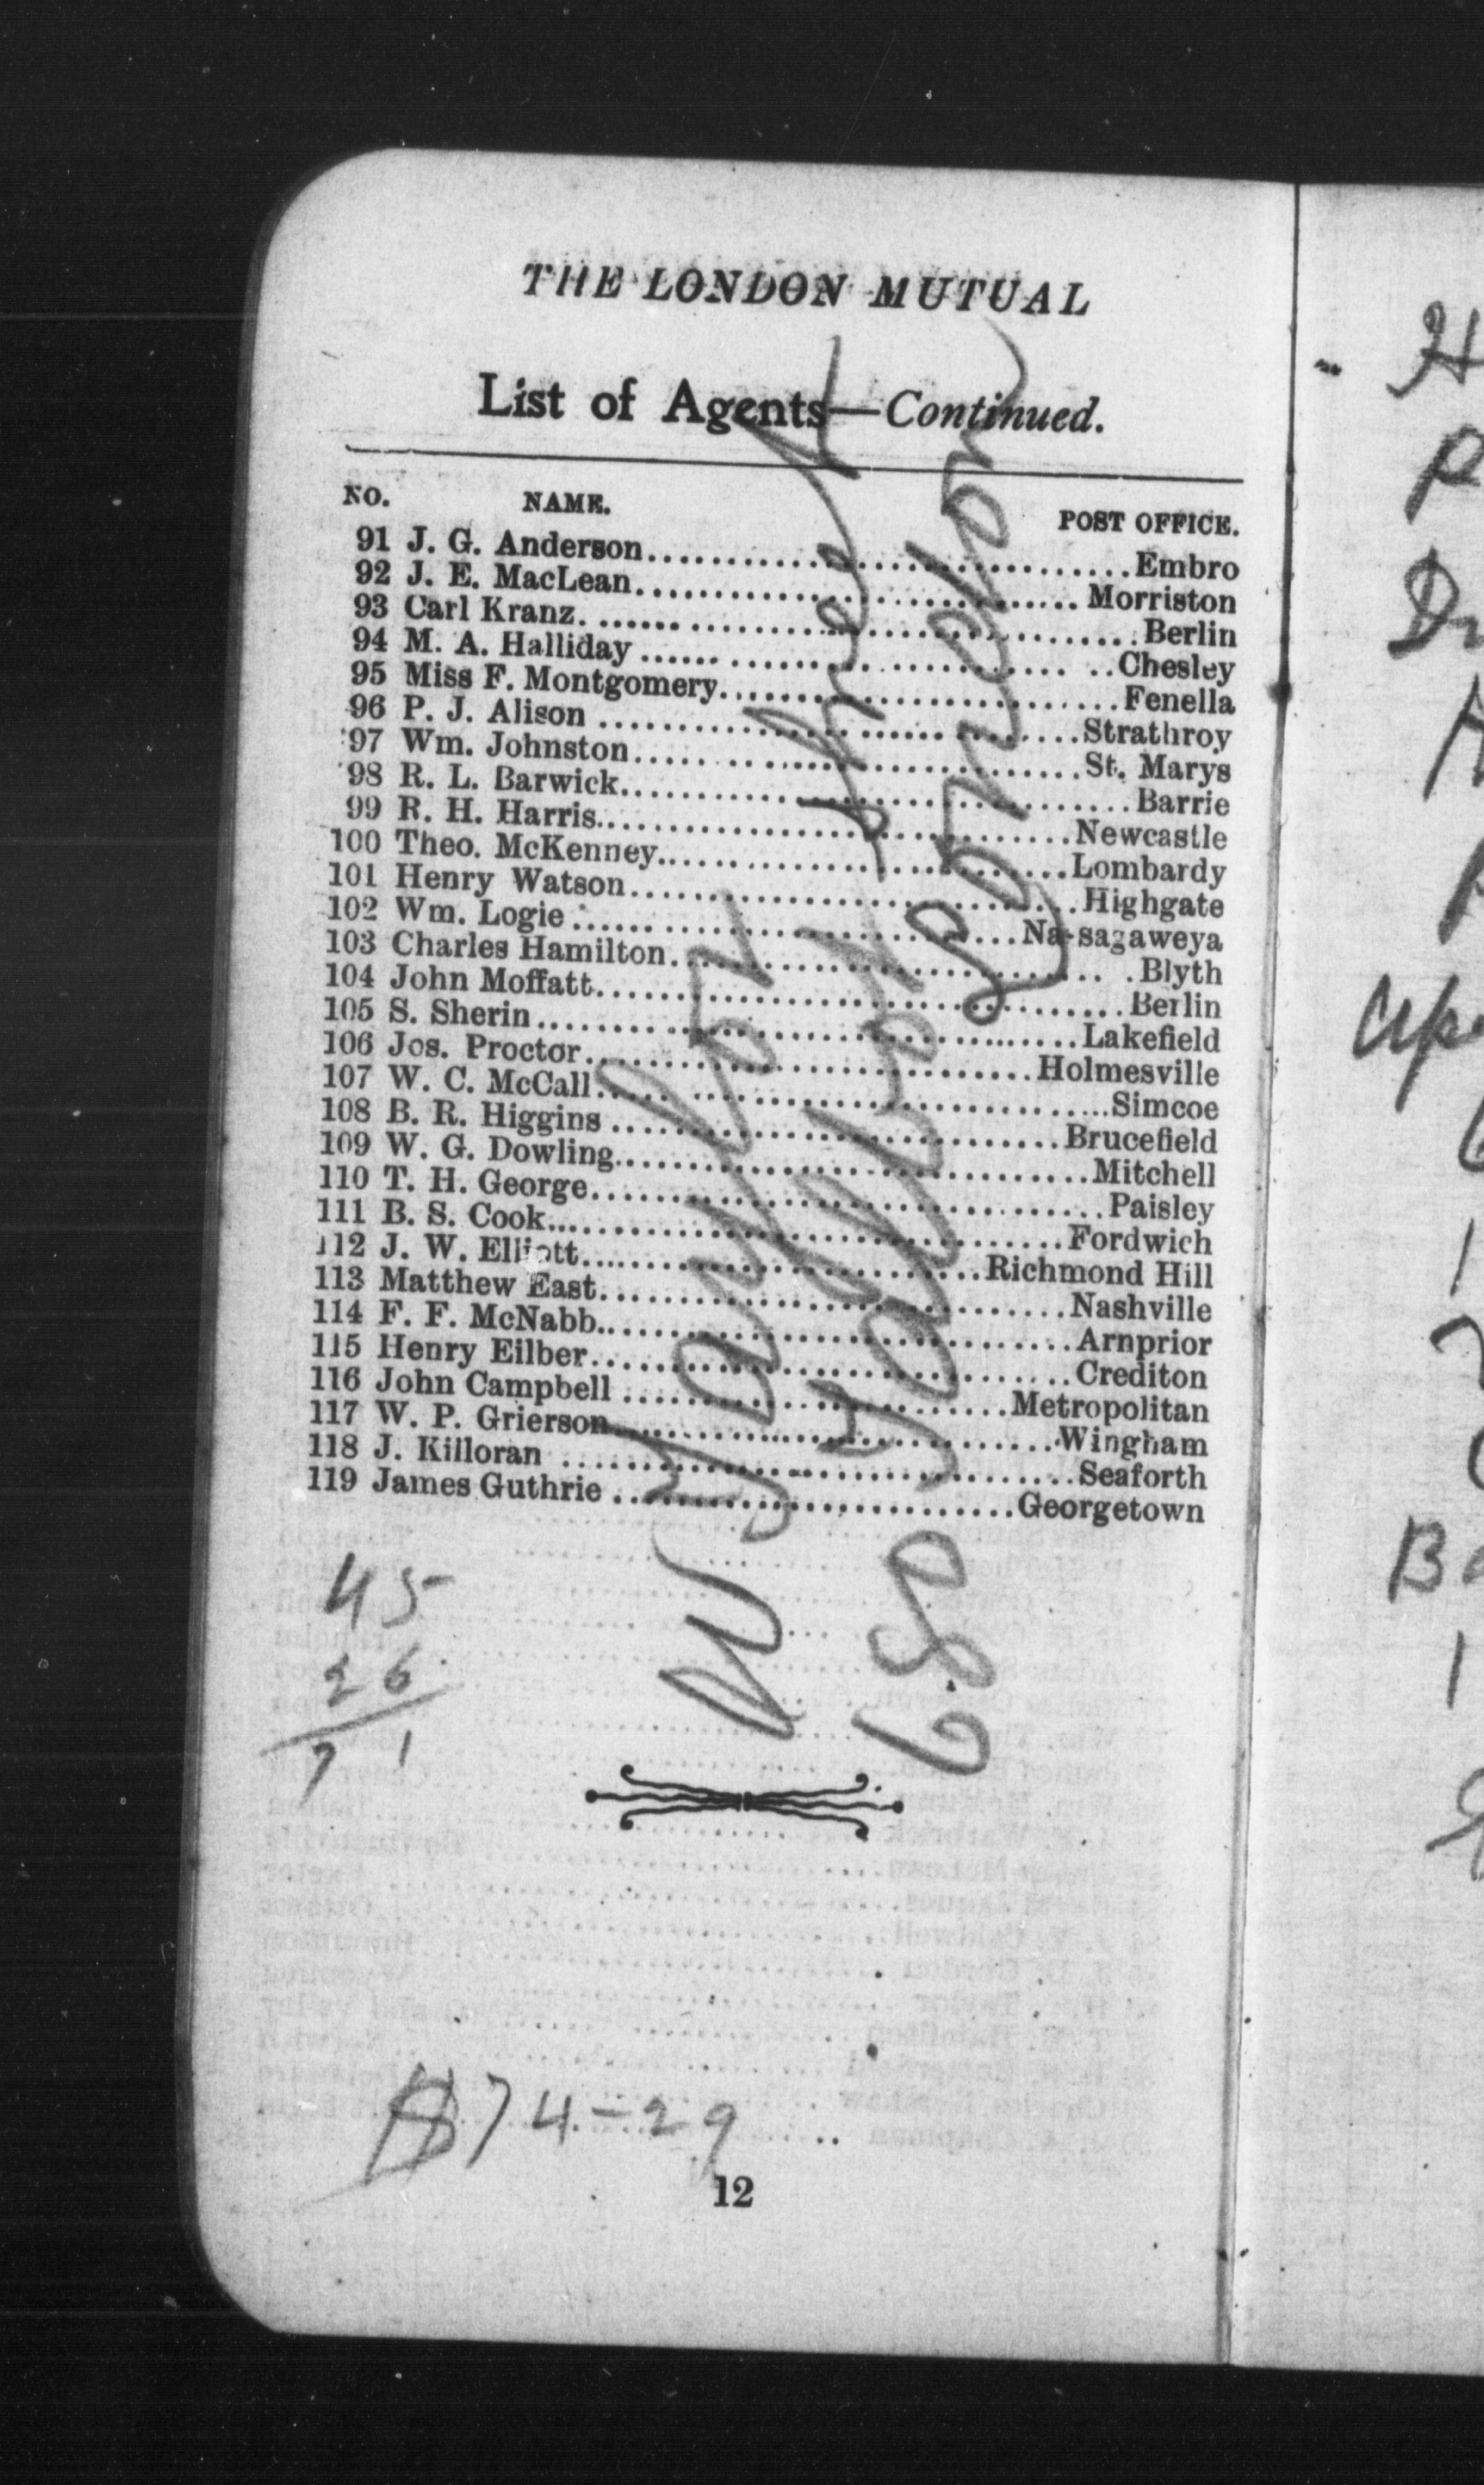 THE LONDON MUTUAL
List of Agents—Continued.
NO. NAME. POST OFFICE.
91 J. G. Anderson Embro
92 J. E. MacLean Morriston
93 Carl Kranz Berlin
94 M. A. Halliday Chesley
95 Miss F. Montgomery Fenella
96 P. J. Alison Strathroy
97 Wm. Johnston St. Marys
98 R. L. Barwick Barrie
99 R. H. Harris Newcastle
100 Theo. McKenney Lombardy
101 Henry Watson Highgate
102 Wm. Logie Nassagaweya
103 Charles Hamilton Blyth
104 John Moffatt Berlin
105 S. Sherin Lakefield
106 Jos. Proctor Holmesville
107 W. C. McCall Simcoe
108 B. R. Higgins Brucefield
109 W. G. Dowling Mitchell
110 T. H. George Paisley
111 B. S. Cook Fordwich
112 J. W. Elliott Richmond Hill
113 Matthew East Nashville
114 F. F. McNabb Arnprior
115 Henry Eilber Crediton
116 John Campbell Metropolitan
117 W. P. Grierson Wingham
118 J. Killoran Seaforth
119 James Guthrie Georgetown
45
26
71
$74-29
12